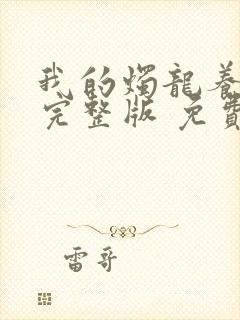 我的燭龍養
完整版 免費
雷哥